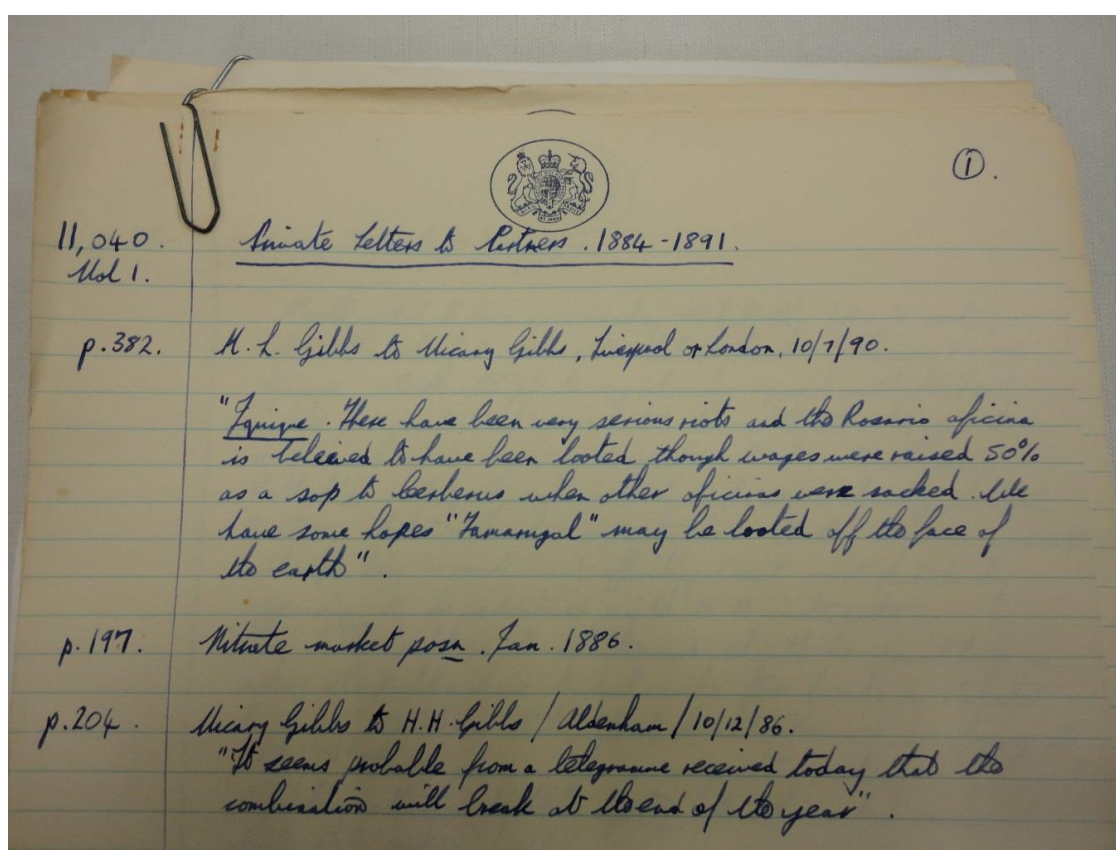 ①.
11,040. Private Letters to Partners. 1884-1891.
Vol 1.
p.382. H. L. Gibbs to Vicary Gibbs, Liverpool or London, 10/7/90.
"Iquique. There have been very serious riots and the Rosario oficina
is believed to have been looted though wages were raised 50%
as a sop to Cerberus when other oficinas were sacked. We
have some hopes "Tamarugal" may be looted off the face of
the earth".
p.197. Nitrate market posn. Jan. 1886.
p.204. Vicary Gibbs to H.H. Gibbs / Aldenham / 10/12/86.
"It seems probable from a telegramme received today that the
combination will break at the end of the year".